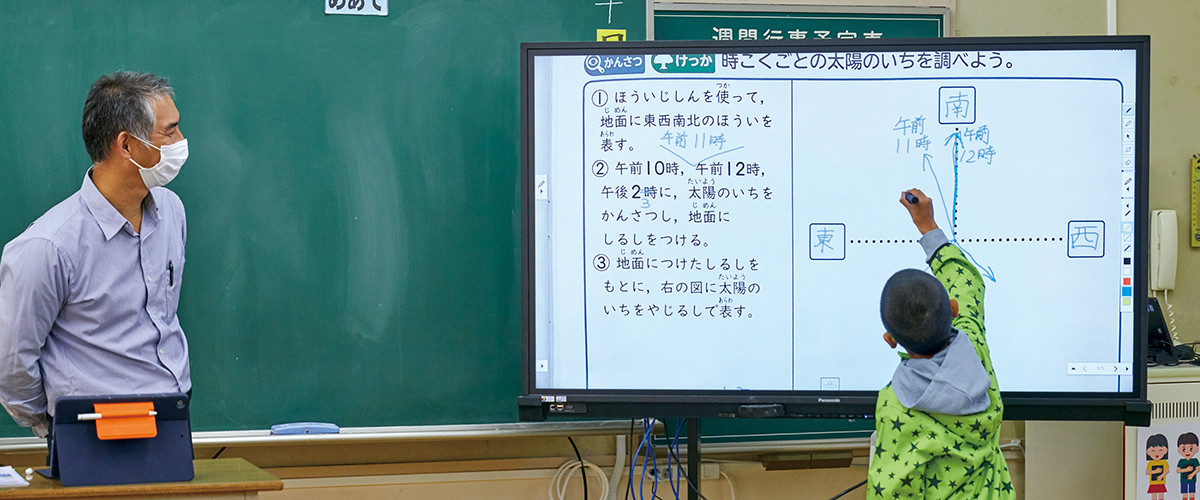 めあて
週間行事予定表
かんさつ けっか 時こくごとの太陽のいちを調べよう。
① ほういじしんを使って，
地面に東西南北のほういを
表す。 午前11時
② 午前10時，午前12時，
午後2時に，太陽のいちを
3
かんさつし，地面に
しるしをつける。
③ 地面につけたしるしを
もとに，右の図に太陽の
いちをやじるしで表す。
南
午前
11時
午前
12時
東
西
1/1
Panasonic